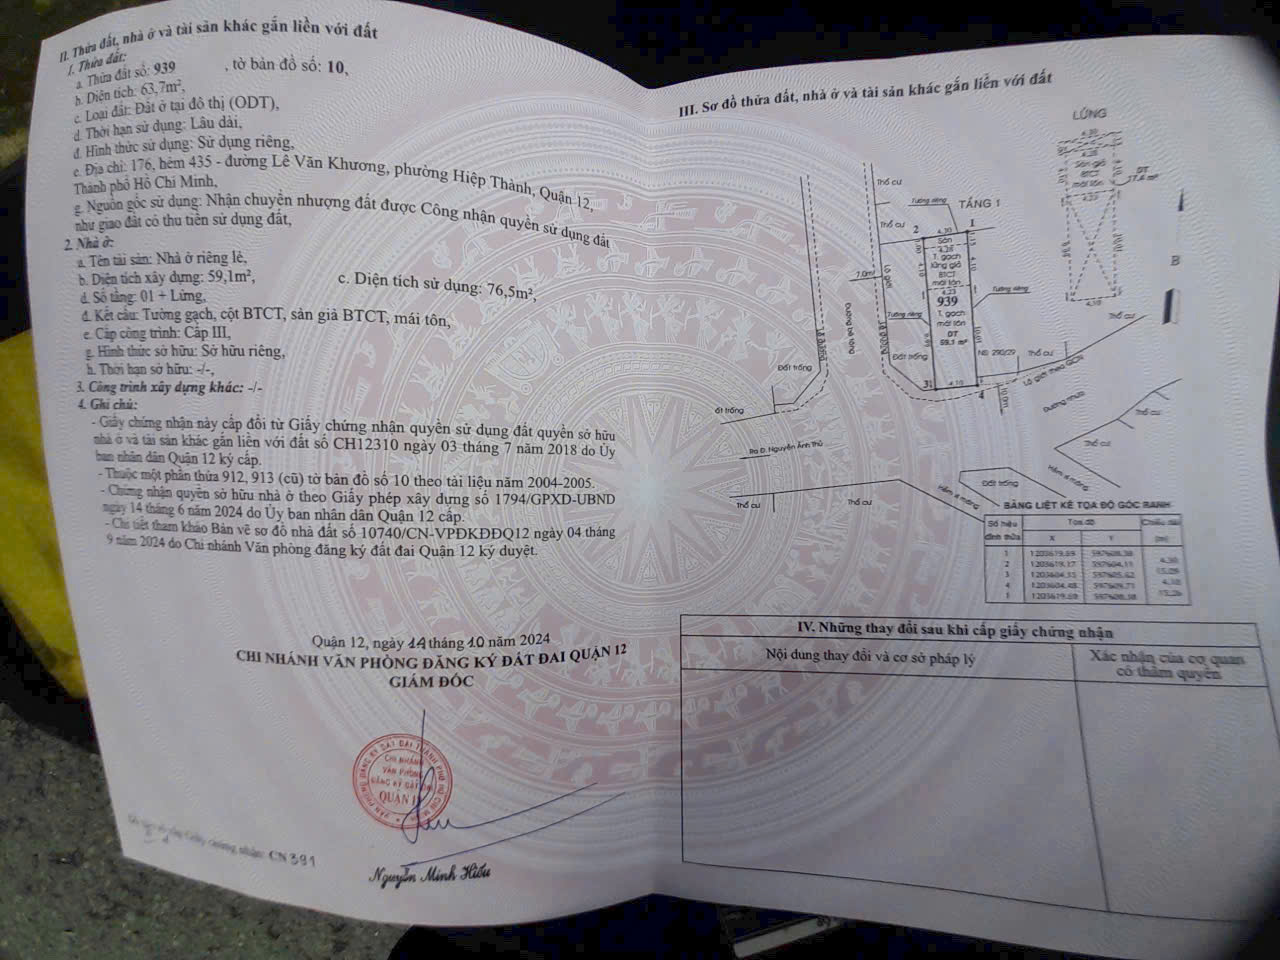 II. Thửa đất, nhà ở và tài sản khác gắn liền với đất
1. Thửa đất:
a. Thửa đất số: 939 , tờ bản đồ số: 10,
b. Diện tích: 63,7m²,
c. Loại đất: Đất ở tại đô thị (ODT),
d. Thời hạn sử dụng: Lâu dài,
đ. Hình thức sử dụng: Sử dụng riêng,
e. Địa chỉ: 176, hẻm 435 - đường Lê Văn Khương, phường Hiệp Thành, Quận 12,
Thành phố Hồ Chí Minh,
g. Nguồn gốc sử dụng: Nhận chuyển nhượng đất được Công nhận quyền sử dụng đất
như giao đất có thu tiền sử dụng đất,
2. Nhà ở:
a. Tên tài sản: Nhà ở riêng lẻ,
b. Diện tích xây dựng: 59,1m², c. Diện tích sử dụng: 76,5m²,
d. Số tầng: 01 + Lửng,
đ. Kết cấu: Tường gạch, cột BTCT, sàn giả BTCT, mái tôn,
e. Cấp công trình: Cấp III,
g. Hình thức sở hữu: Sở hữu riêng,
h. Thời hạn sở hữu: -/-,
3. Công trình xây dựng khác: -/-
4. Ghi chú:
- Giấy chứng nhận này cấp đổi từ Giấy chứng nhận quyền sử dụng đất quyền sở hữu
nhà ở và tài sản khác gắn liền với đất số CH12310 ngày 03 tháng 7 năm 2018 do Ủy
ban nhân dân Quận 12 ký cấp.
- Thuộc một phần thửa 912, 913 (cũ) tờ bản đồ số 10 theo tài liệu năm 2004-2005.
- Chứng nhận quyền sở hữu nhà ở theo Giấy phép xây dựng số 1794/GPXD-UBND
ngày 14 tháng 6 năm 2024 do Ủy ban nhân dân Quận 12 cấp.
- Chi tiết tham khảo Bản vẽ sơ đồ nhà đất số 10740/CN-VPĐKĐĐQ12 ngày 04 tháng
9 năm 2024 do Chi nhánh Văn phòng đăng ký đất đai Quận 12 ký duyệt.
Quận 12, ngày 14 tháng 10 năm 2024
CHI NHÁNH VĂN PHÒNG ĐĂNG KÝ ĐẤT ĐAI QUẬN 12
GIÁM ĐỐC
CHI NHÁNH
VĂN PHÒNG
ĐĂNG KÝ ĐẤT ĐAI
QUẬN 12
Nguyễn Minh Hiếu
Số vào sổ cấp Giấy chứng nhận: CN 391
III. Sơ đồ thửa đất, nhà ở và tài sản khác gắn liền với đất
LỬNG
4.10
TẦNG 1
Thổ cư
Tường riêng
Thổ cư
2
1
4.30
Sân
T. gạch
BTCT
mái tôn
4.23
939
T. gạch
mái tôn
ĐT
59.1 m²
Tường riêng
Tường riêng
7.0m
Lộ giới
Đường bê tông
B
Thổ cư
NS: 290/29
Thổ cư
Lộ giới theo QCN
Đất trống
3
4.10
4
10.0m
Đất trống
Đường nhựa
Ra Đ. Nguyễn Ảnh Thủ
Thổ cư
Thổ cư
Thổ cư
Thổ cư
Hẻm xi măng
Hẻm xi măng
Đất trống
BẢNG LIỆT KÊ TỌA ĐỘ GÓC RANH
Số hiệu đỉnh thửa Tọa độ Chiều dài (m)
X Y
1 1203619.59 597608.38
4.30
2 1203619.17 597604.11
15.09
3 1203604.15 597605.62
4.10
4 1203604.48 597609.71
15.26
1 1203619.59 597608.38
IV. Những thay đổi sau khi cấp giấy chứng nhận
Nội dung thay đổi và cơ sở pháp lý
Xác nhận của cơ quan
có thẩm quyền